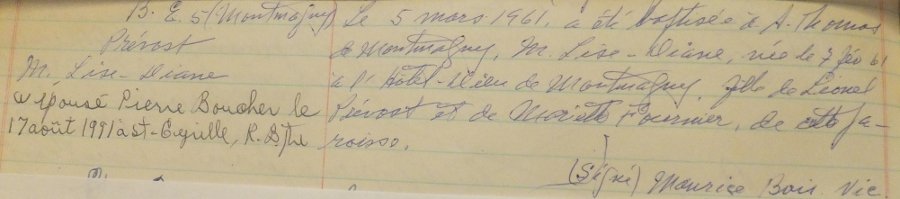 B. E. 5 (Montmagny)
Prévost
M. Lise-Diane
a épousé Pierre Boucher le
17 août 1991 à St-Cyrille, R. D.
Le 5 mars 1961, a été baptisée à St-Thomas
de Montmagny, M. Lise-Diane, née le 7 fév 61
à l'Hôtel-Dieu de Montmagny, fille de Lionel
Prévost et de Mariette Fournier, de cette pa-
roisse.
(Signé) Maurice Bois Vic.